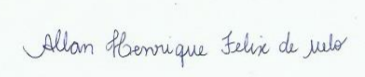 Allan Henrique Felix de melo